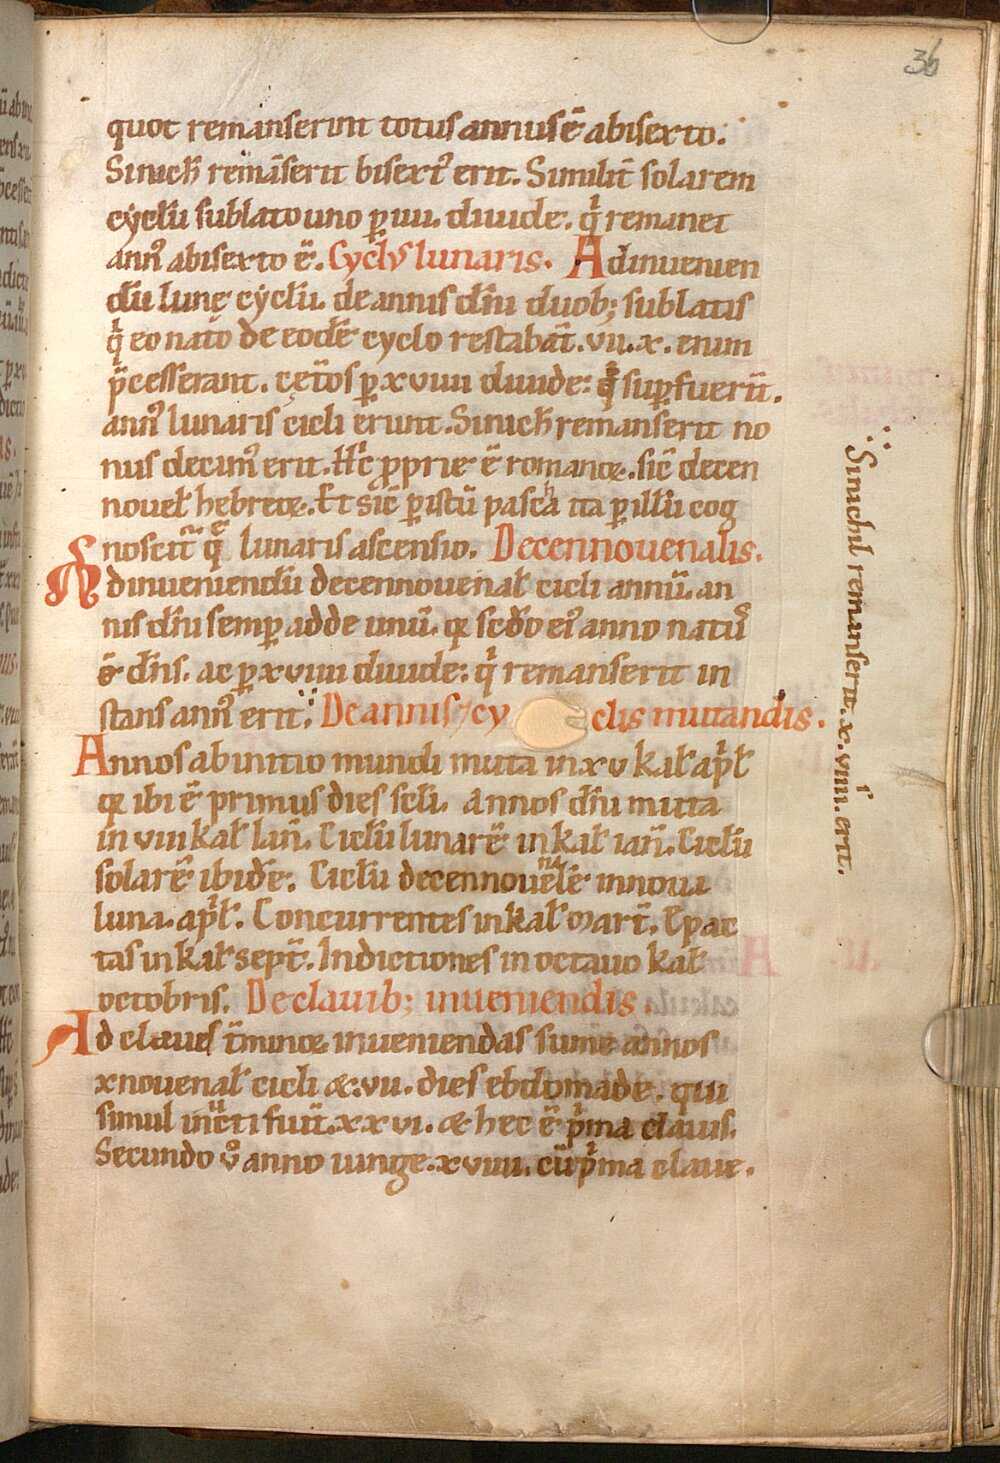 36
quot remanserint totus annus ē abisexto.
Si nich̄ remāserit bisext᷒ erit. Similit̄ solarem
cyclū sublato uno ꝑ iiii. diuide. qͥ remanet
ann᷒ abisexto ē. Cyclus lunaris. Adinuenien
dū lunę cyclū. de annis dn̄i duob; sublatis
qͥ eo nato de eodē cyclo restabāt. vii. x. enim
p̄cesserant. cęt̄os ꝑ xviiii diuide: qͥ suꝑfuer̄t.
ann᷒ lunaris cicli erunt. Si nich̄ remanserit no
nus decim᷒ erit. Hͥc ꝓprie ē romanoꝝ. sic̄ decen
nouel̄ hebreoꝝ. Et sic̄ ꝑ istū pascha ita ꝑ illū cog
noscit᷑ q̄ lunaris ascensio. Decennouenalis.
Adinueniendū decennouenal̄ cicli annū. an
nis dn̄i semꝑ adde unū. qꝛ scd̄o ei᷒ anno natus
ē dn̄s. ac ꝑ xviiii diuide: qͥ remanserit in
stans ann᷒ erit. De annis ⁊ cy clis mutandis.
Annos ab initio mundi muta in xv kal̄ apͥl̄
qꝛ ibi ē primus dies scl̄i. Annos dn̄i muta
in viii kal̄ Ian̄. Ciclū lunarē in kal̄ ian̄. Ciclū
solarē ibidē. Ciclū decennouenalē in noua
luna. apͥl̄. Concurrentes in kal̄ mart̄. Epac
tas in kal̄ sept̄. Indictiones in octauo kal̄
octobris. De clauib; inueniendis.
Ad claues t̄minoꝝ inueniendas sume annos
xnouenal̄ cicli &. vii. dies ebdomade. qui
simul iūcti fiūt. xxvi. & hec ē pͥma clauis.
Secundo v̊ anno iunge. xviiii. cū pͥma claue.
Si nichil remanserit. x. viiii. erit.